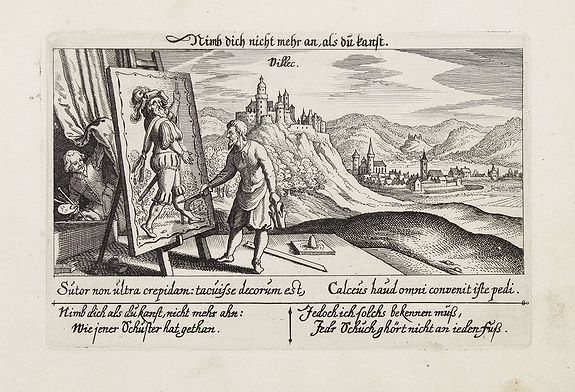 Nimb dich nicht mehr an, als dū kanst.
Villec.
Sūtor non ūltra crepidam: tacūisse decorum est,
Calceus haud omni convenit iste pedi.
Nimb dich als dū kanst, nicht mehr ahn:
Wie jener Schūster hat gethan.
Jedoch ich solchs bekennen mūß,
Jedr Schuch ghört nicht an ieden Fūß.